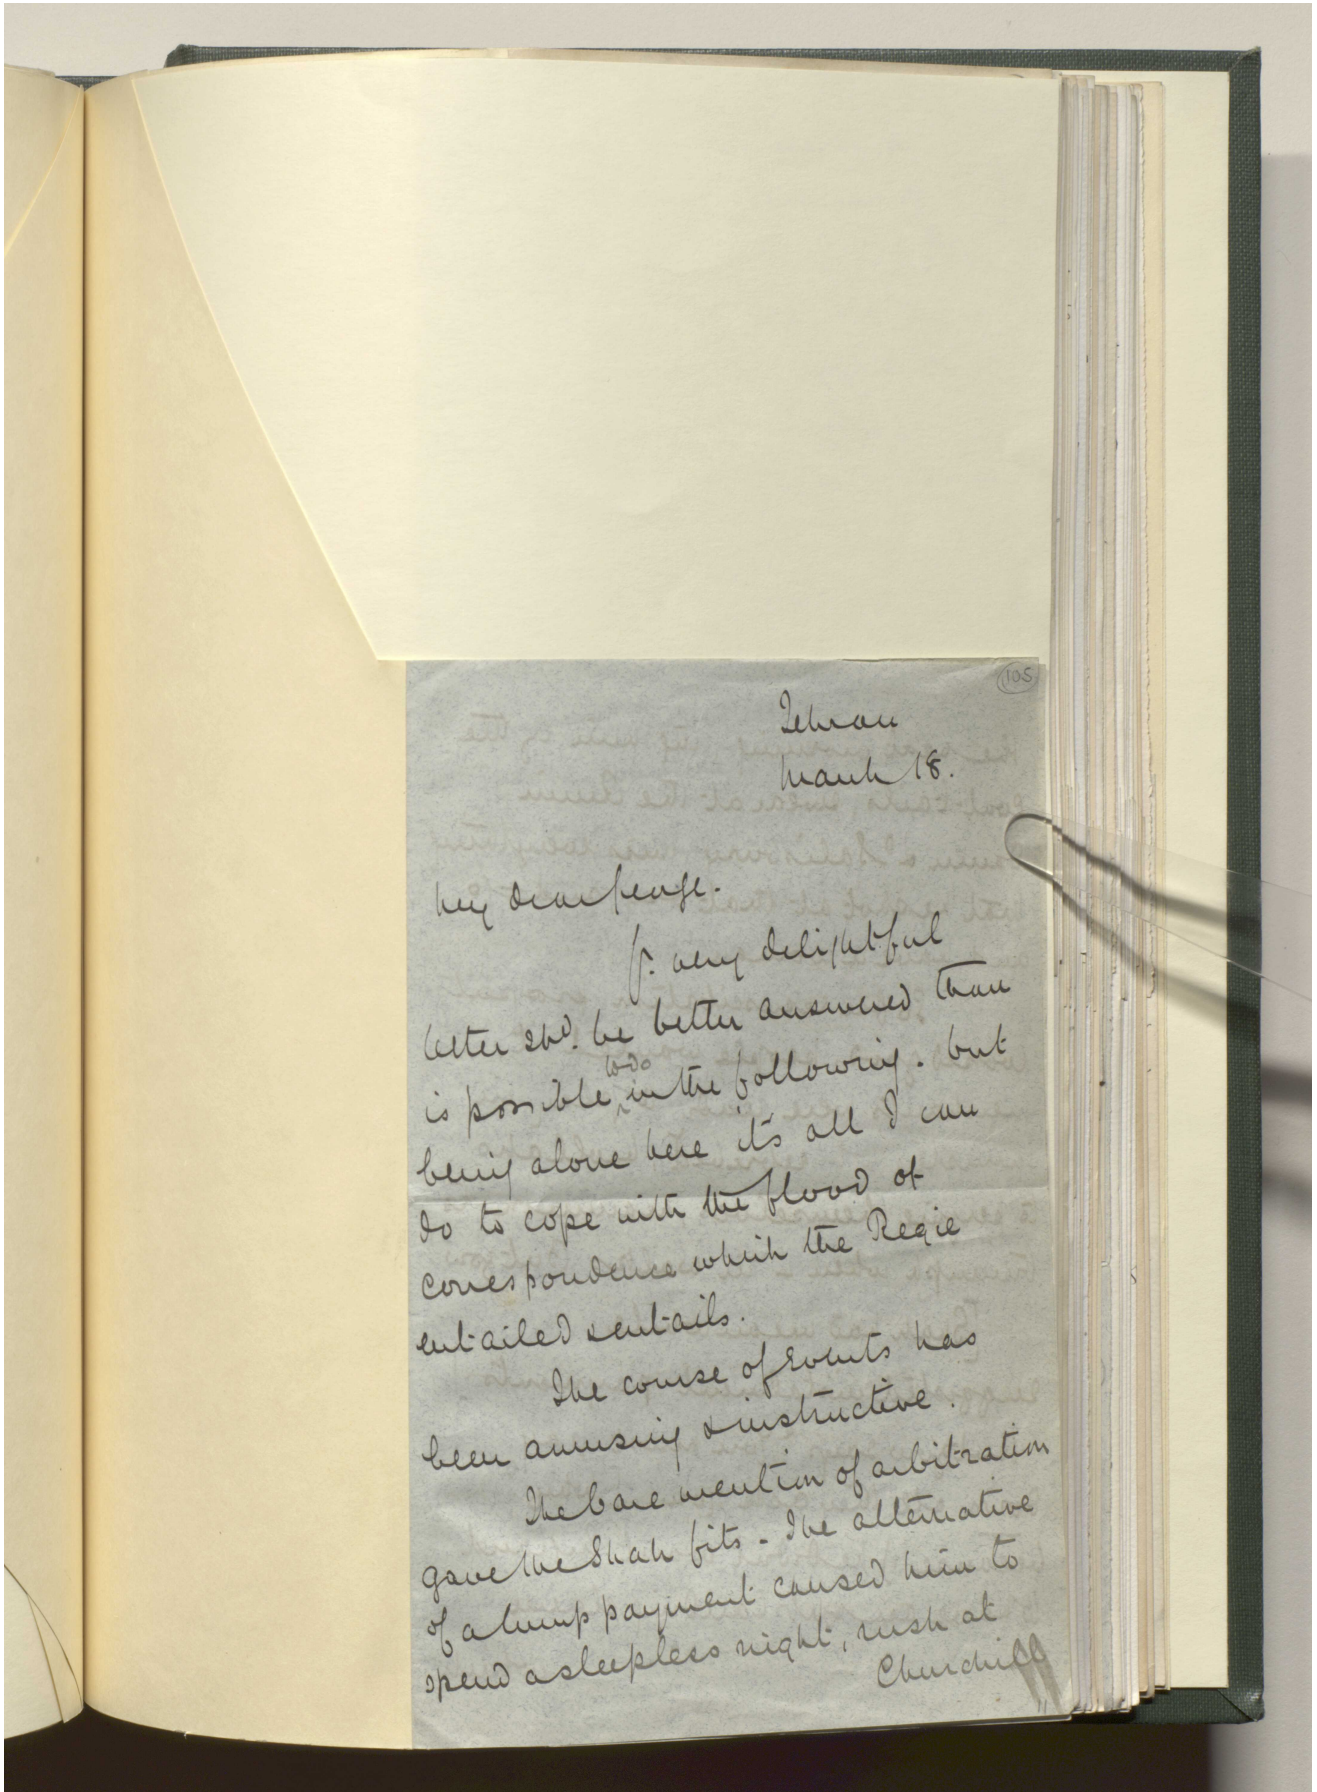 105
Tehran
March 18.
My dear George.
Yr. very delightful
letter shd. be better answered than
is possible to do in the following. but
being alone here it's all I can
do to cope with the flood of
correspondence which the Regie
entailed & entails.
The course of Events has
been amusing & instructive.
The bare mention of arbitration
gave the Shah fits - The alternative
of a lump payment caused him to
spend a sleepless night, rush at
Churchill